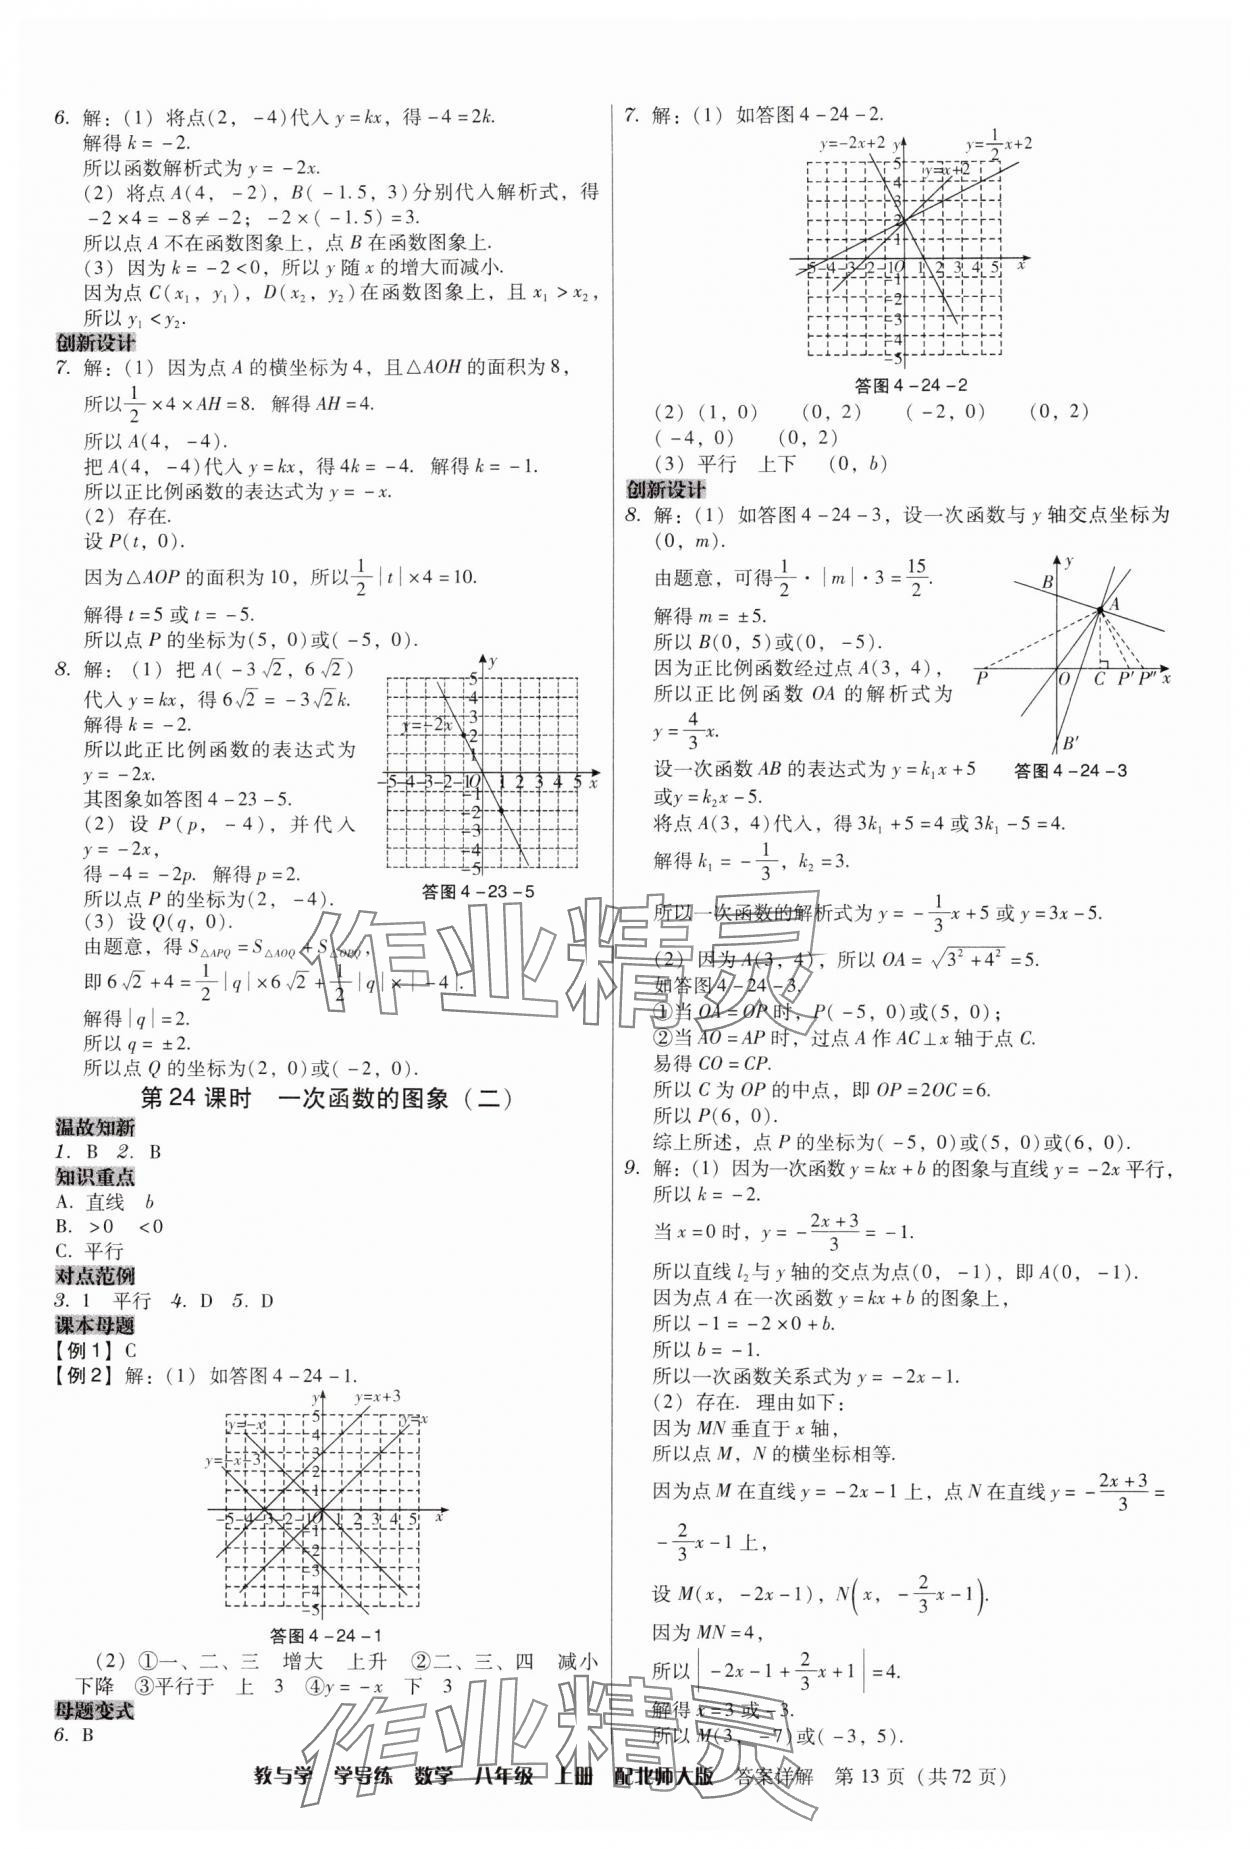 6. 解：(1) 将点(2，-4)代入 y=kx，得 -4=2k.
解得 k=-2.
所以函数解析式为 y=-2x.
(2) 将点 A(4，-2)，B(-1.5，3)分别代入解析式，得
-2×4=-8≠-2；-2×(-1.5)=3.
所以点 A 不在函数图象上，点 B 在函数图象上.
(3) 因为 k=-2<0，所以 y 随 x 的增大而减小.
因为点 C(x₁，y₁)，D(x₂，y₂)在函数图象上，且 x₁>x₂，
所以 y₁<y₂.
创新设计
7. 解：(1) 因为点 A 的横坐标为 4，且△AOH 的面积为 8，
所以1/2×4×AH=8. 解得 AH=4.
所以 A(4，-4).
把 A(4，-4)代入 y=kx，得 4k=-4. 解得 k=-1.
所以正比例函数的表达式为 y=-x.
(2) 存在.
设 P(t，0).
因为△AOP 的面积为 10，所以1/2|t|×4=10.
解得 t=5 或 t=-5.
所以点 P 的坐标为(5，0)或(-5，0).
8. 解：(1) 把 A(-3√2，6√2)
代入 y=kx，得 6√2=-3√2k.
解得 k=-2.
所以此正比例函数的表达式为
y=-2x.
其图象如答图 4-23-5.
(2) 设 P(p，-4)，并代入
y=-2x，
得 -4=-2p. 解得 p=2.
所以点 P 的坐标为(2，-4).
y=-2x
答图 4-23-5
(3) 设 Q(q，0).
由题意，得 S△APQ=S△AOQ+S△OPQ，
即 6√2+4=1/2|q|×6√2+1/2|q|×|-4|.
解得|q|=2.
所以 q=±2.
所以点 Q 的坐标为(2，0)或(-2，0).
第 24 课时 一次函数的图象（二）
温故知新
1. B 2. B
知识重点
A. 直线 b
B. >0 <0
C. 平行
对点范例
3. 1 平行 4. D 5. D
课本母题
【例 1】C
【例 2】解：(1) 如答图 4-24-1.
y=x+3
y=-x
y=x
y=-x-3
答图 4-24-1
(2) ①一、二、三 增大 上升 ②二、三、四 减小
下降 ③平行于 上 3 ④y=-x 下 3
母题变式
6. B
7. 解：(1) 如答图 4-24-2.
y=-2x+2
y=1/2x+2
y=x+2
答图 4-24-2
(2) (1，0) (0，2) (-2，0) (0，2)
(-4，0) (0，2)
(3) 平行 上下 (0，b)
创新设计
8. 解：(1) 如答图 4-24-3，设一次函数与 y 轴交点坐标为
(0，m).
由题意，可得1/2·|m|·3=15/2.
解得 m=±5.
所以 B(0，5)或(0，-5).
因为正比例函数经过点 A(3，4)，
所以正比例函数 OA 的解析式为
y=4/3x.
设一次函数 AB 的表达式为 y=k₁x+5
或y=k₂x-5.
y
B
A
P O C P′ P″ x
B′
答图 4-24-3
将点 A(3，4)代入，得 3k₁+5=4 或 3k₁-5=4.
解得 k₁=-1/3，k₂=3.
所以一次函数的解析式为 y=-1/3x+5 或 y=3x-5.
(2) 因为 A(3，4)，所以 OA=√(3²+4²)=5.
如答图 4-24-3.
①当 OA=OP 时，P(-5，0)或(5，0)；
②当 AO=AP 时，过点 A 作 AC⊥x 轴于点 C.
易得 CO=CP.
所以 C 为 OP 的中点，即 OP=2OC=6.
所以 P(6，0).
综上所述，点 P 的坐标为(-5，0)或(5，0)或(6，0).
9. 解：(1) 因为一次函数 y=kx+b 的图象与直线 y=-2x 平行，
所以 k=-2.
当 x=0 时，y=-(2x+3)/3=-1.
所以直线 l₂与 y 轴的交点为点(0，-1)，即 A(0，-1).
因为点 A 在一次函数 y=kx+b 的图象上，
所以 -1=-2×0+b.
所以 b=-1.
所以一次函数关系式为 y=-2x-1.
(2) 存在. 理由如下：
因为 MN 垂直于 x 轴，
所以点 M，N 的横坐标相等.
因为点 M 在直线 y=-2x-1 上，点 N 在直线 y=-(2x+3)/3=
-2/3x-1 上，
设 M(x，-2x-1)，N(x，-2/3x-1).
因为 MN=4，
所以|-2x-1+2/3x+1|=4.
解得 x=3 或 -3.
所以 M(3，-7)或(-3，5).
教与学 学导练 数学 八年级 上册 配北师大版 答案详解 第 13 页（共 72 页）
作业精灵
作业精灵